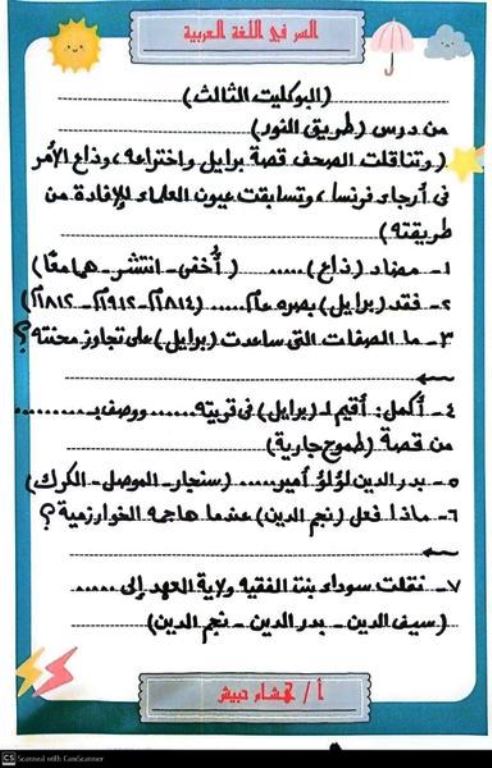 السر في اللغة العربية
(البوكليت الثالث)
من درس (طريق النور)
(وتناقلت الصحف قصة برايل واختراعه، وذاع الأمر
في أرجاء فرنسا، وتسابقت عيون العلماء للإفادة من
طريقته)
١- مضاد (ذاع)..... (أُخفى - انتشر - هما معًا)
٢- فقد (برايل) بصره عام..... (١٨١٤م - ١٩١٢م - ١٨١٢م)
٣- ما الصفات التى ساعدت (برايل) على تجاوز محنته؟
٤- أكمل: أقيم لـ (برايل) فى قريته...... ووصف بـ.........
من قصة (طموح جارية)
٥- بدر الدين لؤلؤ أمير..... (سنجار - الموصل - الكرك)
٦- ماذا فعل (نجم الدين) عندما هاجمه الخوارزمية؟
٧- نقلت سوداء بنت الفقيه ولاية العهد إلى .....
(سيف الدين - بدر الدين - نجم الدين)
أ / هشام حبيش
CS Scanned with CamScanner